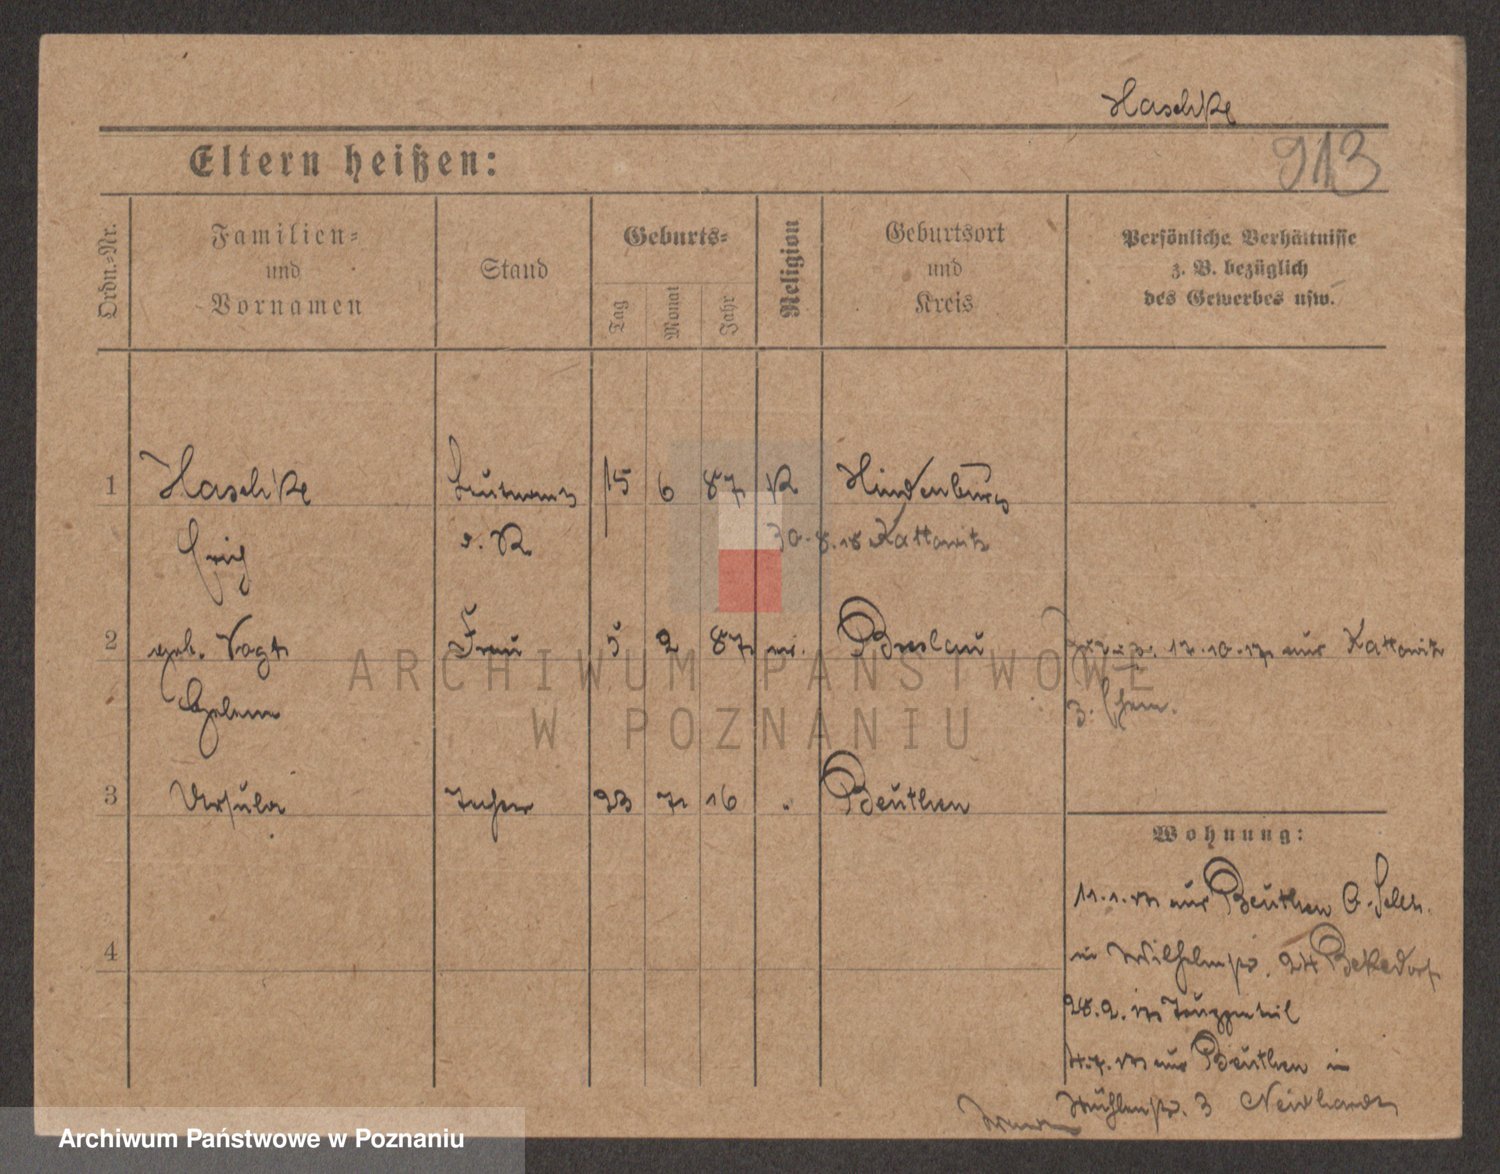 Haschke
Eltern heißen:
913
Ordn.-Nr.
Familien-
und
Vornamen
Stand
Geburts-
Tag
Monat
Jahr
Religion
Geburtsort
und
Kreis
Persönliche Verhältnisse
z. B. bezüglich
des Gewerbes usw.
1 Haschke Leutnant 15 6 87 K Hindenburg
Erich d. R. 30.8.18 Kattowitz
2 geb. Vogt Frau 5 2 87 Breslau 17.10.17 aus Kattowitz
z. Ehem.
3 Ursula Tochter 23 7 16 Beuthen
Wohnung:
11.1. aus Beuthen O.-Schles.
in Wilhelmstr. 24
4
28.2. in
4.7. aus Beuthen in
Mühlenstr. 3
ARCHIWUM PAŃSTWOWE
W POZNANIU
Archiwum Państwowe w Poznaniu